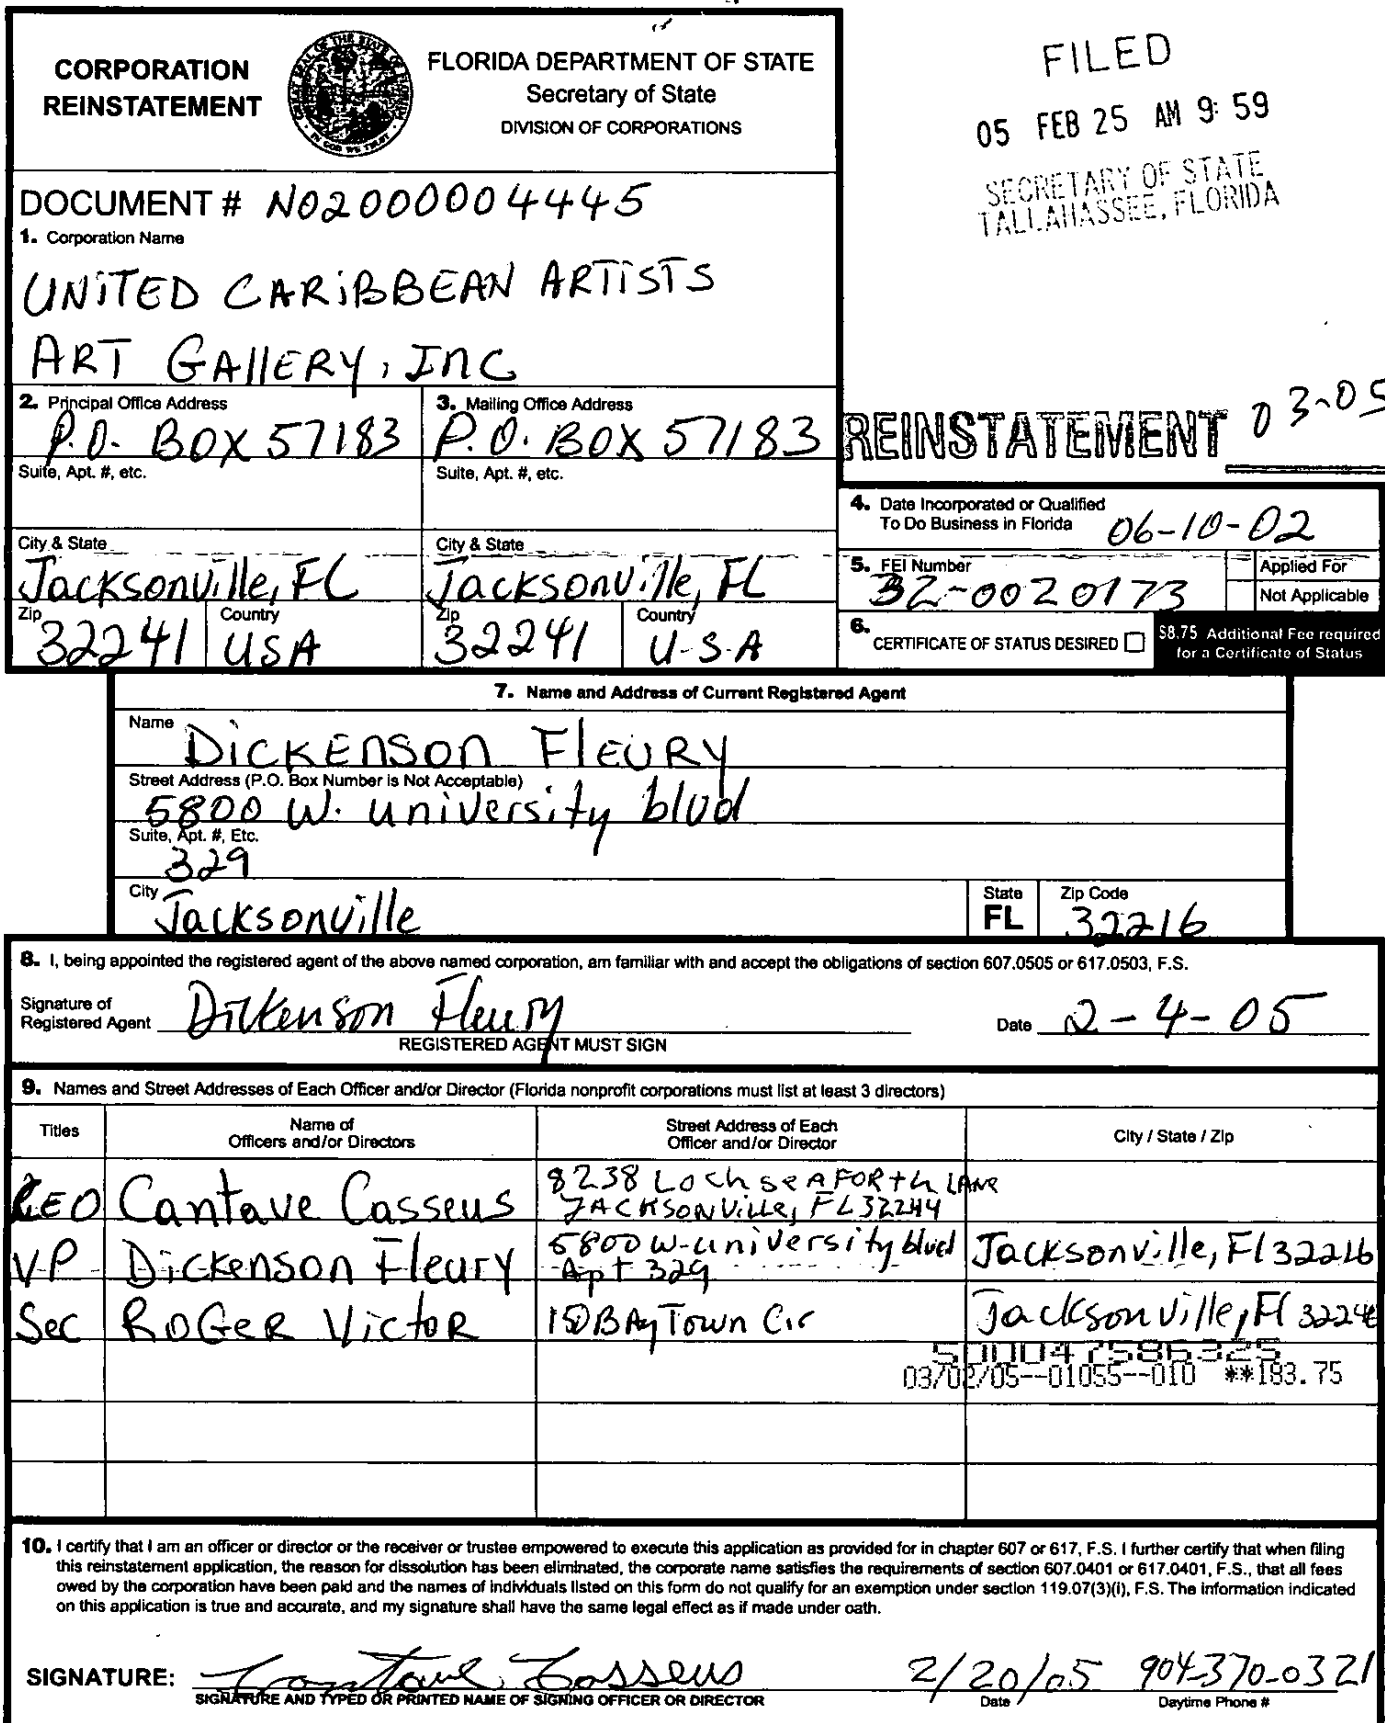 CORPORATION
REINSTATEMENT
FLORIDA DEPARTMENT OF STATE
Secretary of State
DIVISION OF CORPORATIONS
FILED
05 FEB 25 AM 9:59
SECRETARY OF STATE
TALLAHASSEE, FLORIDA
DOCUMENT # N02000004445
1. Corporation Name
UNITED CARIBBEAN ARTISTS
ART GALLERY, INC
REINSTATEMENT 03-05
2. Principal Office Address
P.O. BOX 57183
3. Mailing Office Address
P.O. BOX 57183
Suite, Apt. #, etc.
Suite, Apt. #, etc.
City & State
Jacksonville, FL
City & State
Jacksonville, FL
Zip
32241
Country
USA
Zip
32241
Country
U-S-A
4. Date Incorporated or Qualified
To Do Business in Florida 06-10-02
5. FEI Number
32-0020173
Applied For
Not Applicable
6. CERTIFICATE OF STATUS DESIRED
$8.75 Additional Fee required
for a Certificate of Status
7. Name and Address of Current Registered Agent
Name
DICKENSON FLEURY
Street Address (P.O. Box Number is Not Acceptable)
5800 W. university blvd
Suite, Apt. #, Etc.
329
City
Jacksonville
State
FL
Zip Code
32216
8. I, being appointed the registered agent of the above named corporation, am familiar with and accept the obligations of section 607.0505 or 617.0503, F.S.
Signature of
Registered Agent Dickenson Fleury
Date 2-4-05
REGISTERED AGENT MUST SIGN
9. Names and Street Addresses of Each Officer and/or Director (Florida nonprofit corporations must list at least 3 directors)
Titles
Name of
Officers and/or Directors
Street Address of Each
Officer and/or Director
City / State / Zip
CEO Cantave Casseus 8238 Loch SEAFORTH LANE
JACKSONVILLE, FL 32244
VP Dickenson Fleury 5800 W-university blvd Jacksonville, Fl 32216
Apt 329
Sec ROGER VICTOR BAY Town Cir Jacksonville, Fl
500047586325
03/02/05--01055--010 **183.75
10. I certify that I am an officer or director or the receiver or trustee empowered to execute this application as provided for in chapter 607 or 617, F.S. I further certify that when filing
this reinstatement application, the reason for dissolution has been eliminated, the corporate name satisfies the requirements of section 607.0401 or 617.0401, F.S., that all fees
owed by the corporation have been paid and the names of individuals listed on this form do not qualify for an exemption under section 119.07(3)(i), F.S. The information indicated
on this application is true and accurate, and my signature shall have the same legal effect as if made under oath.
SIGNATURE: Cantave Casseus 2/20/05 904-370-0321
SIGNATURE AND TYPED OR PRINTED NAME OF SIGNING OFFICER OR DIRECTOR
Date
Daytime Phone #